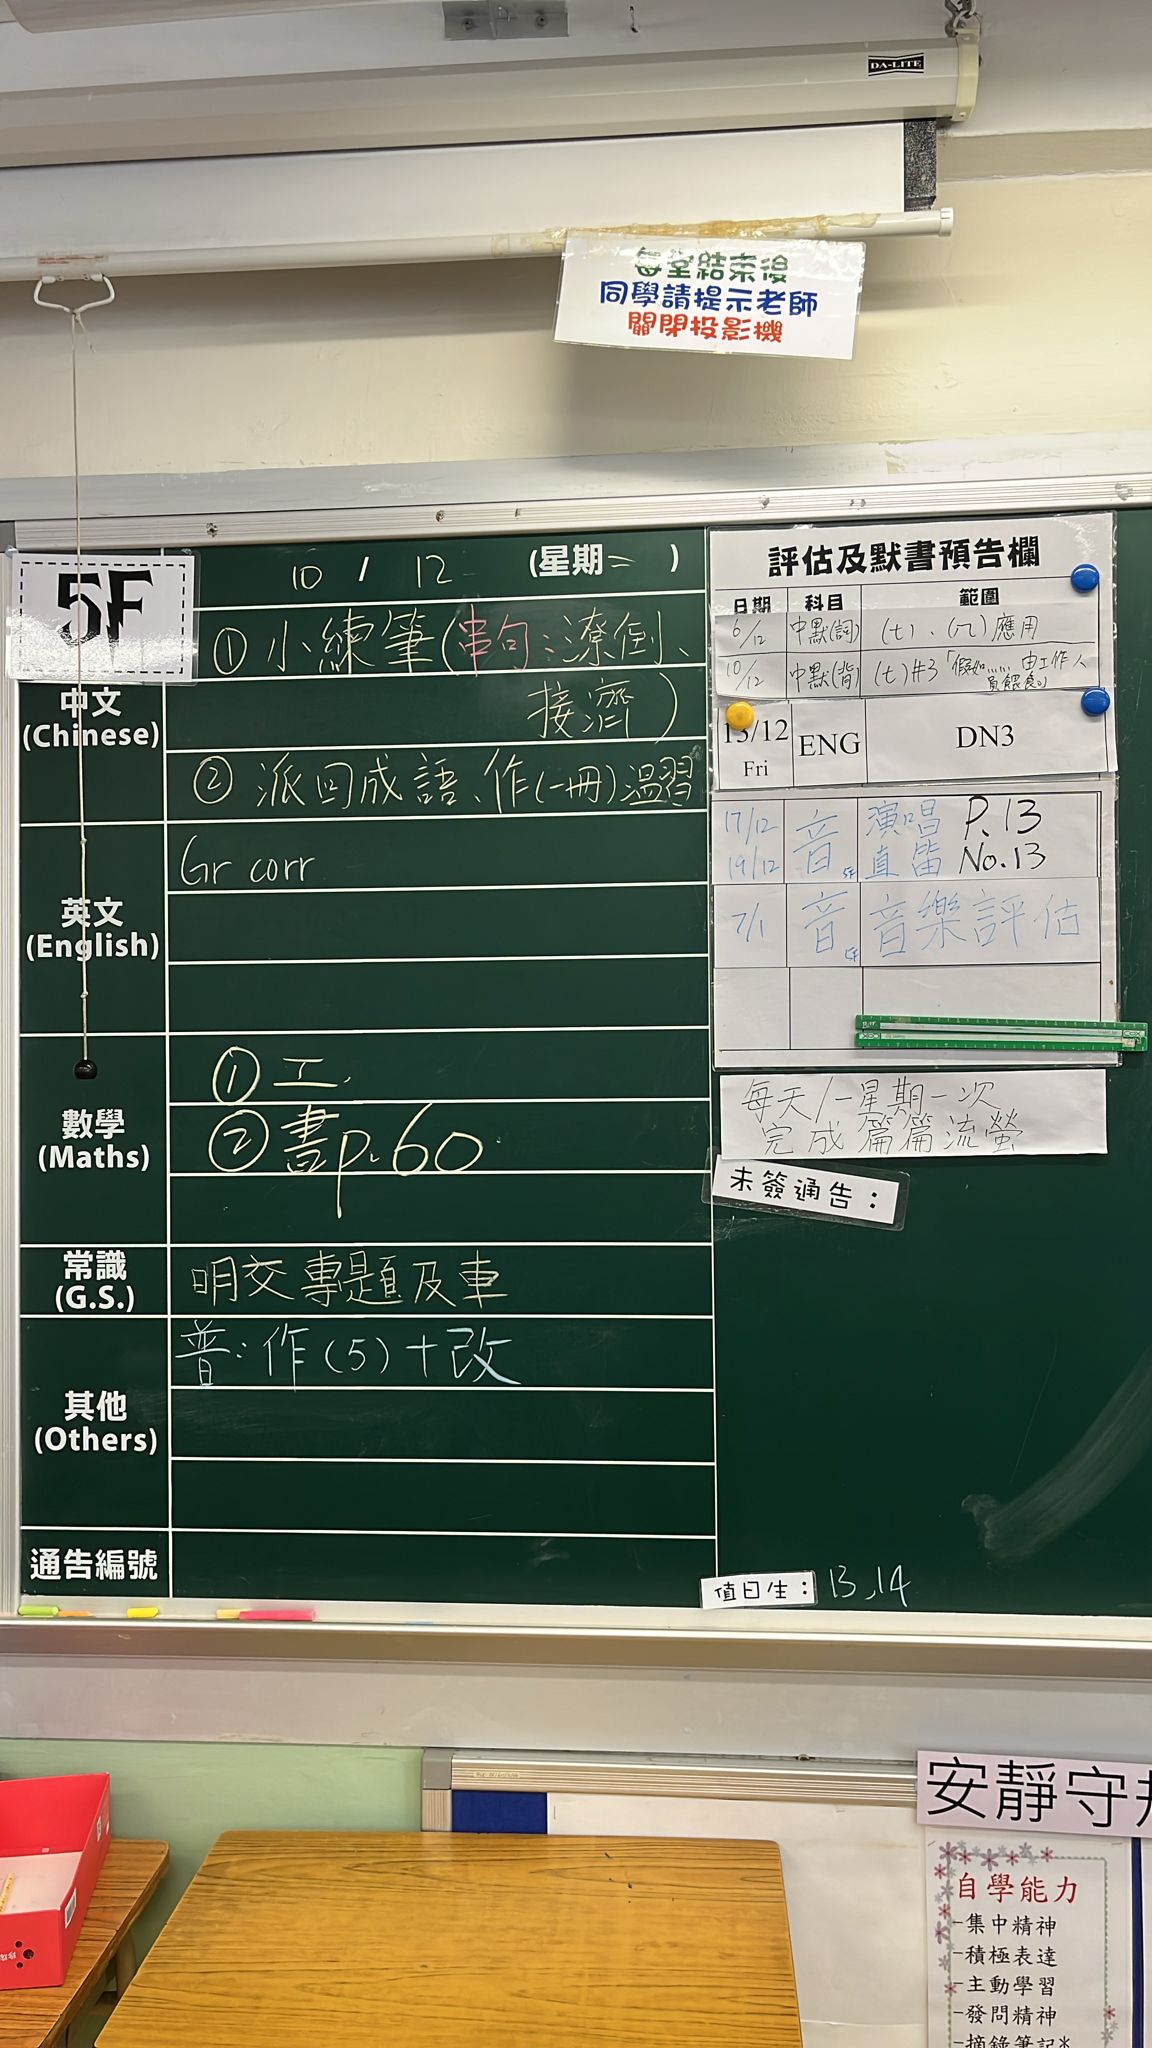 DA-LITE
每堂結束後
同學請提示老師
關閉投影機
5F
10 / 12 (星期二)
中文
(Chinese)
① 小練筆(串句:潦倒、
接濟)
② 派回成語、作(一冊)溫習
英文
(English)
Gr corr
數學
(Maths)
① 工
② 書p.60
常識
(G.S.)
明交專題及車
其他
(Others)
普:作(5)+改
通告編號
評估及默書預告欄
日期 科目 範圍
6/12 中默(詞) (七)、(八)應用
10/12 中默(背) (七)#3「假如…… 由工作人
員餵食」
13/12 Fri ENG DN3
17/12 音 演唱 P.13
19/12 直笛 No.13
7/1 音 音樂評估
每天/一星期一次
完成篇篇流螢
未簽通告:
值日生: 13,14
安靜守
自學能力
-集中精神
-積極表達
-主動學習
-發問精神
-摘錄筆記